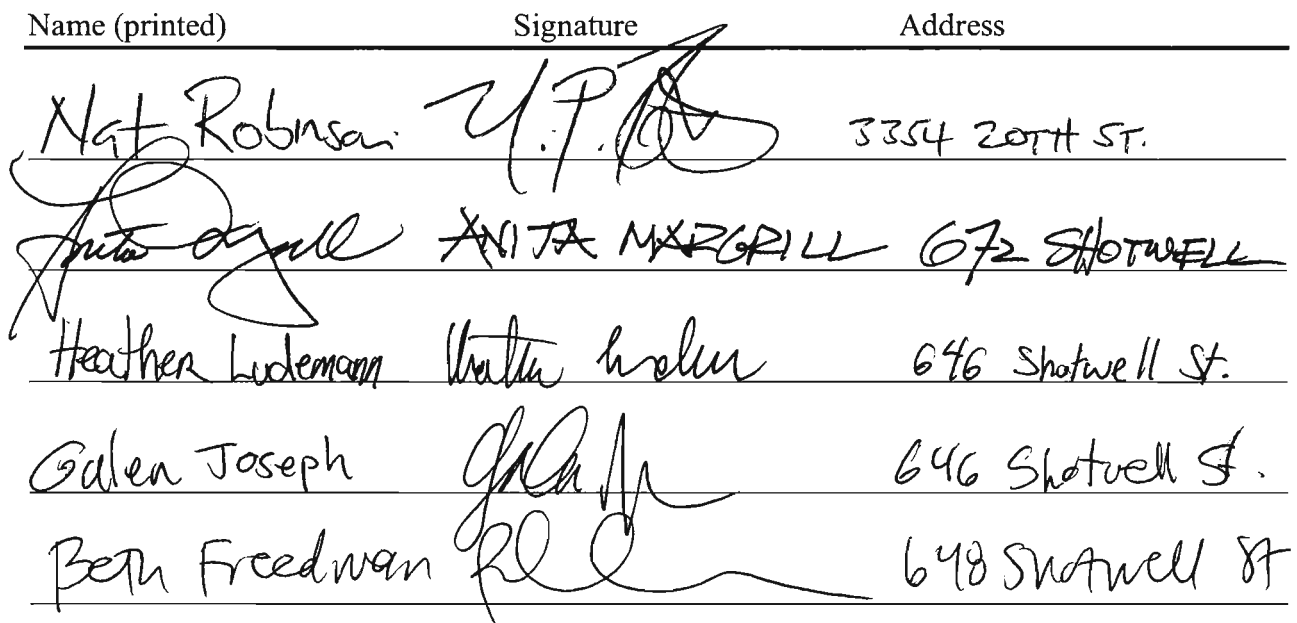 Name (printed) Signature Address
Nat Robinson 3354 20TH ST.
ANITA MARGRILL 672 SHOTWELL
Heather Ludemann 646 Shotwell St.
Galen Joseph 646 Shotwell St.
Beth Freedman 648 Shotwell St